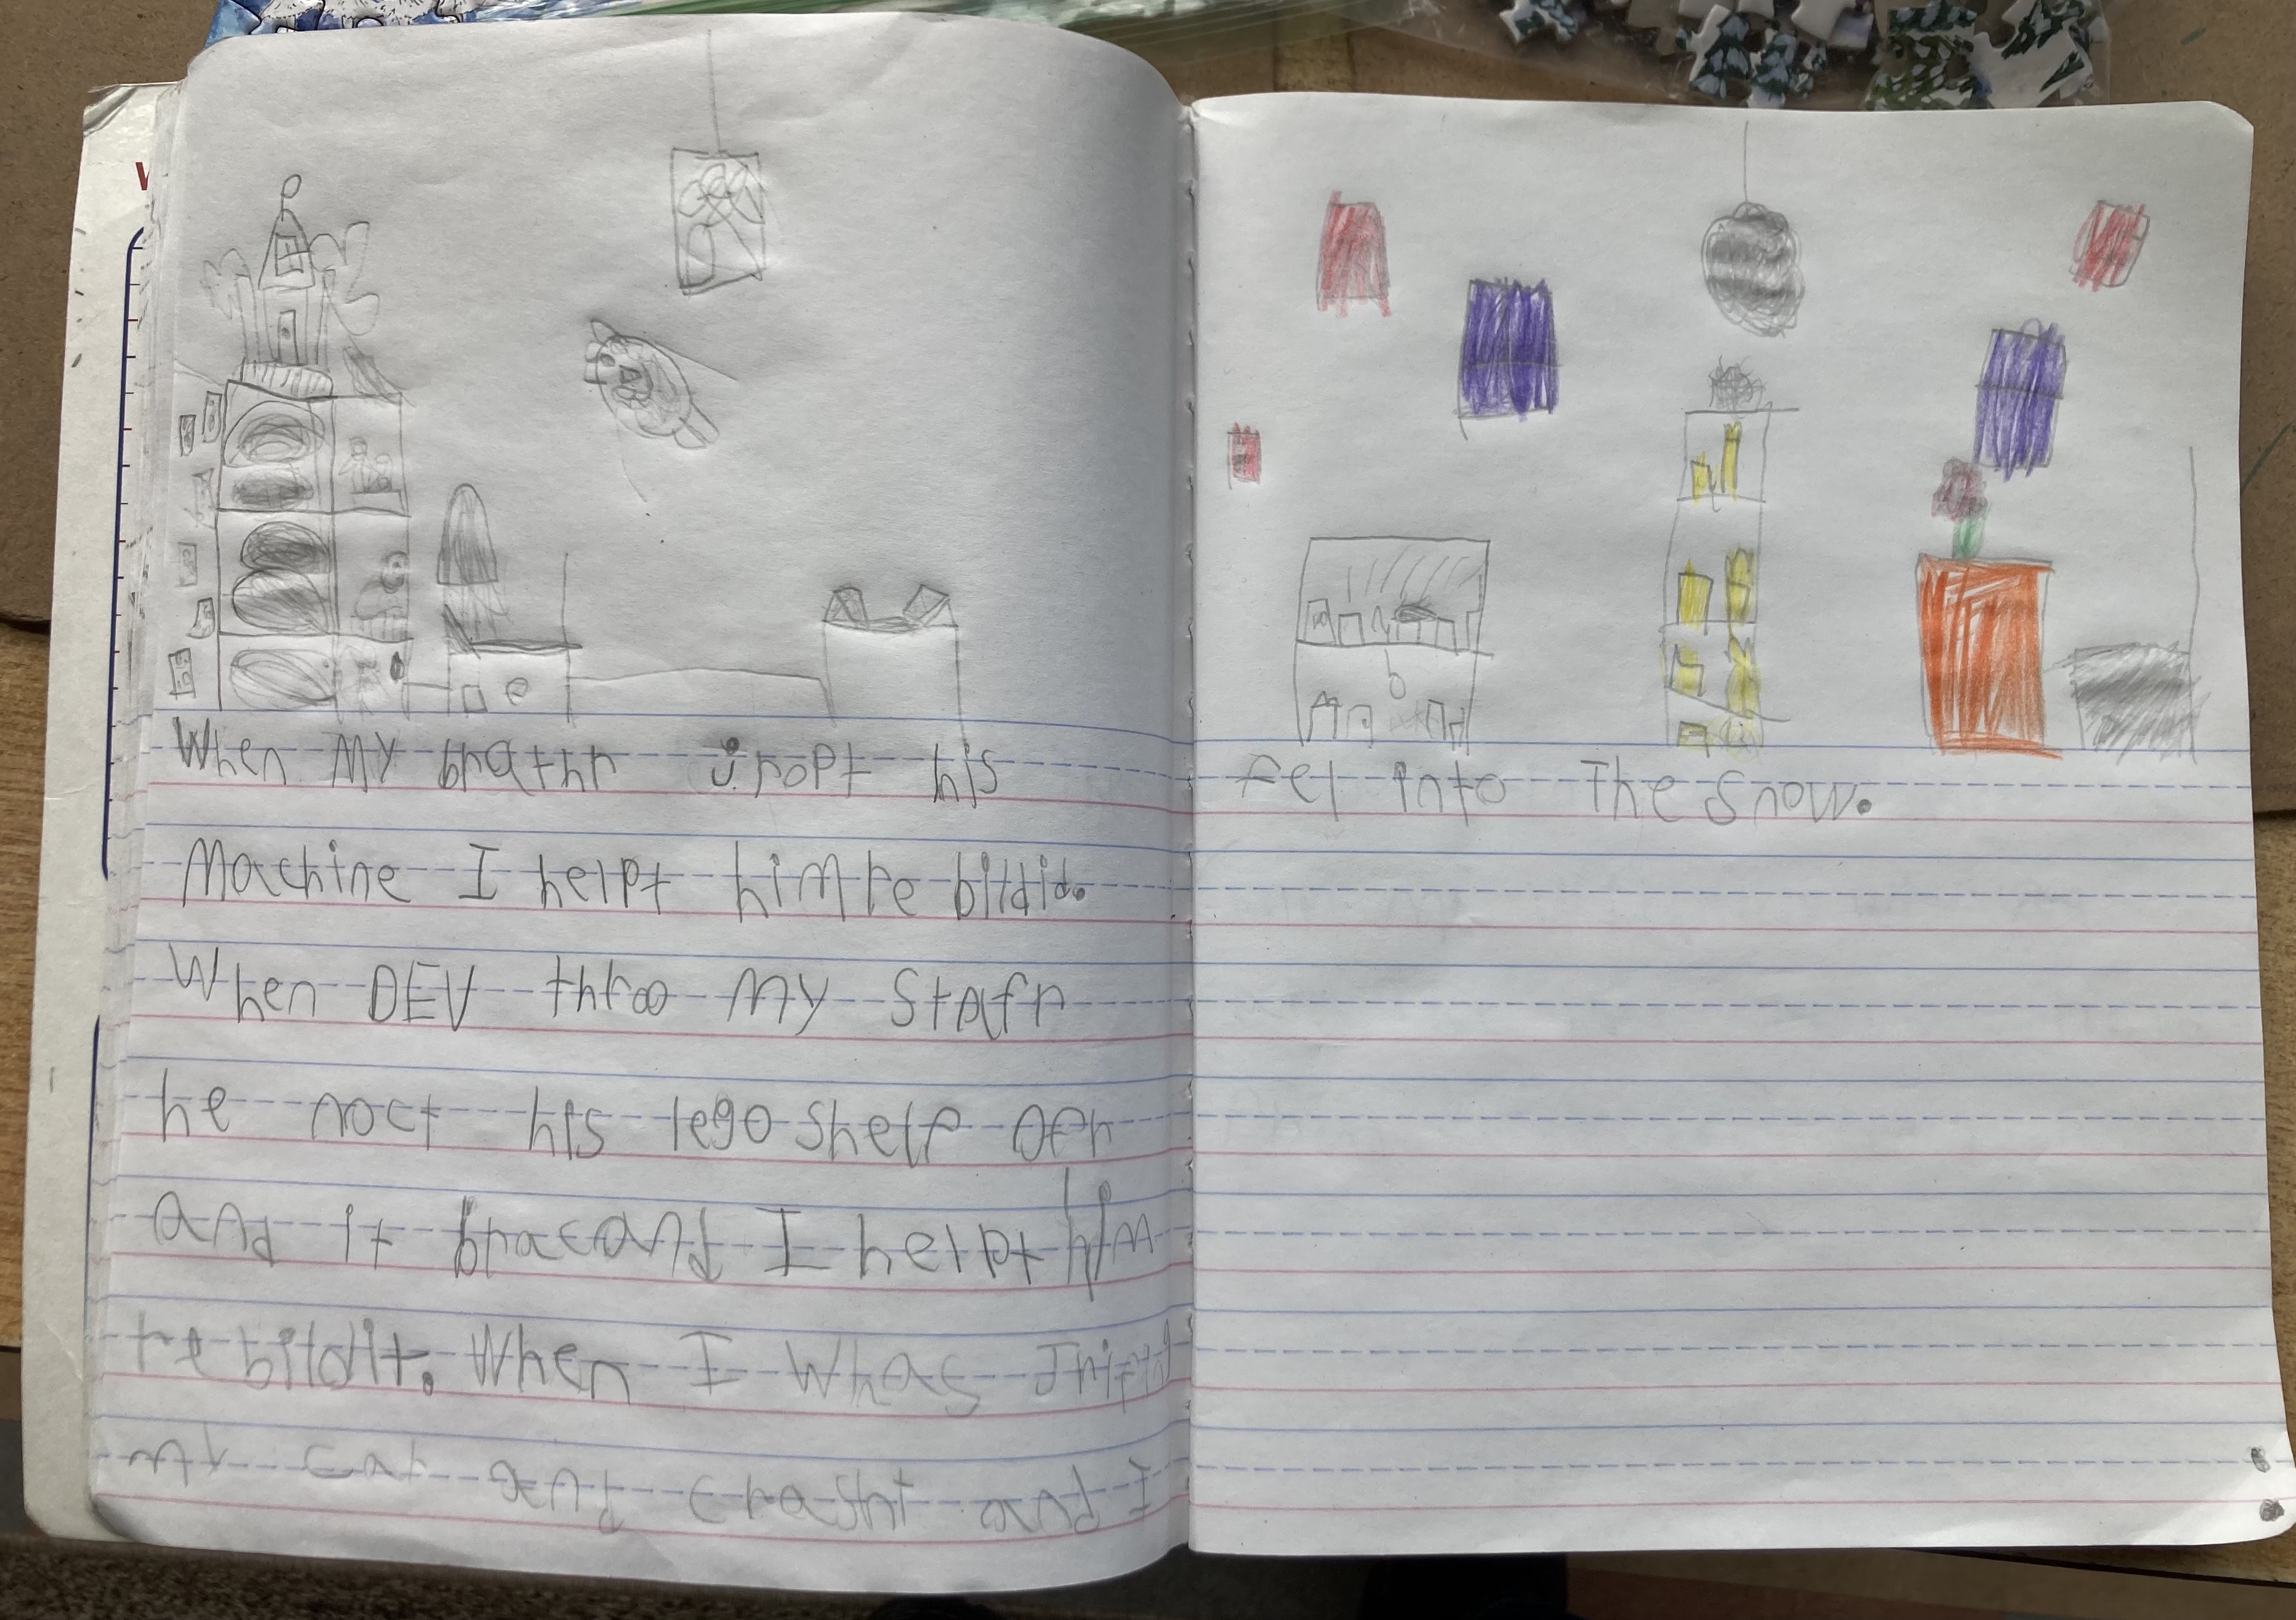 When MY brathr dropt his
Machine I helpt him re bildid.
When DEV throo my Stafr
he noct his lego shelf ofr
and it bracand I helpt him
re bildit. When I whas Jrifing
my car and crasht and I
fel into The Snow.